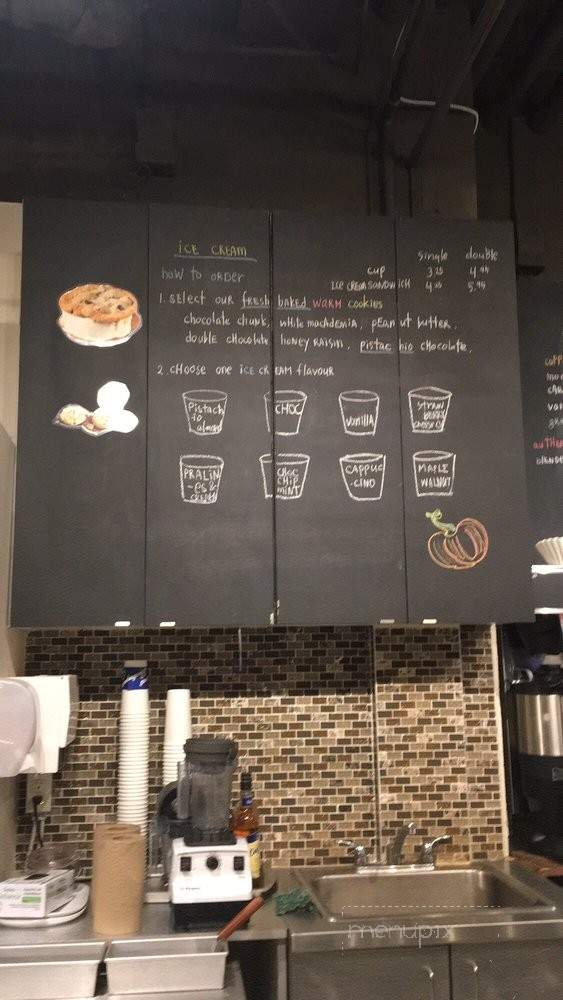 ICE CREAM
how to order
single double
cup 3.25 4.99
ICE CREAM SANDWICH 4.25 5.99
1. select our fresh baked warm cookies
chocolate chunk, white macademia, peanut butter,
double chocolate honey raisin, pistachio chocolate.
2. choose one ICE CREAM flavour
Pistachio almond
CHOC
vanilla
STRAW BERRY
PRALIN -ES &
CHOC CHIP MINT
CAPPUC -CINO
MAPLE WALNUT
menupix